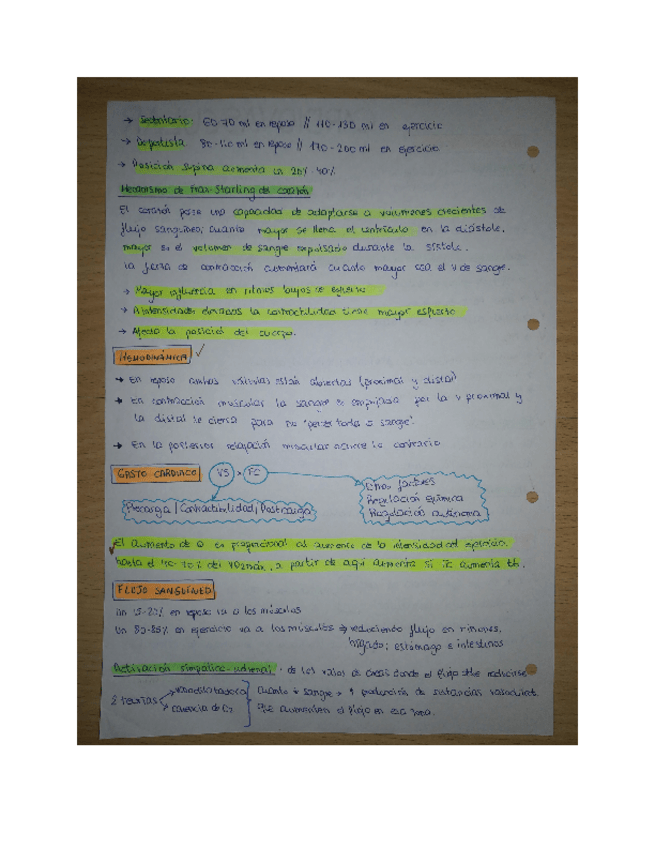 → Sedentario: 60-70 ml en reposo // 110-130 ml en ejercicio
→ Deportista 80-110 ml en reposo // 170-200 ml en ejercicio
→ Posición supina aumenta un 20%-40%
Mecanismo de Fran-Starling del corazón
El corazón posee una capacidad de adaptarse a volumenes crecientes de
flujo sanguíneo, cuanto mayor se llena el ventrículo en la diástole,
mayor es el volumen de sangre expulsado durante la sístole.
La fuerza de contracción aumentará cuanto mayor sea el V de sangre.
→ Mayor influencia en ritmos bajos de esfuerzo
→ A intensidades elevadas la contractilidad tiene mayor esfuerzo
→ Afecta la posición del cuerpo.
HEMODINÁMICA ✓
→ En reposo ambas válvulas están abiertas (proximal y distal)
→ En contracción muscular la sangre es empujada por la v proximal y
la distal se cierra para no "perder toda la sangre".
→ En la posterior relajación muscular ocurre lo contrario
GASTO CARDIACO VS × FC
Otros factores
Precarga / Contractibilidad / Postcarga
Regulación química
Regulación autónoma
El aumento de Q es proporcional al aumento de la intensidad del ejercicio,
hasta el 40-70% del VO2máx, a partir de aquí aumenta si FC aumenta tb.
FLUJO SANGUINEO
Un 15-20% en reposo va a los músculos
Un 80-85% en ejercicio va a los músculos → reduciendo flujo en riñones,
hígado, estómago e intestinos
Activación simpático-adrenal: de los vasos de zonas donde el flujo debe reducirse
2 teorías
vasodilatadora
carencia de O2
cuanto ↓ sangre → ↑ producción de sustancias vasodilat.
que aumenten el flujo en esa zona.